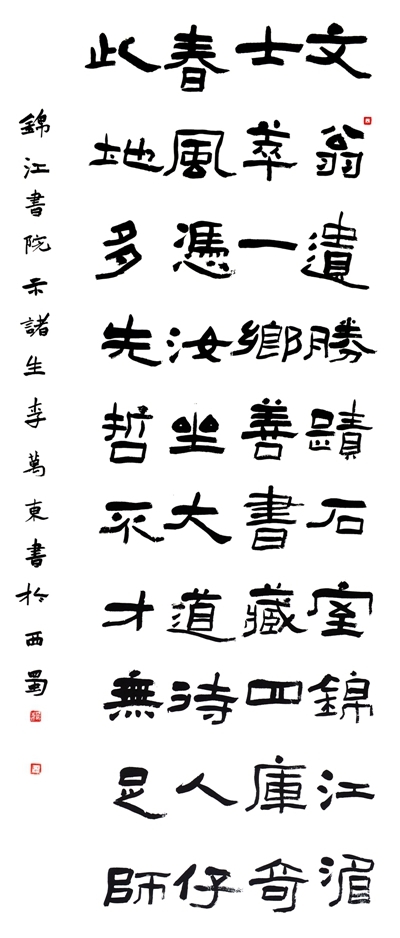 文翁遺勝蹟石室錦江湄
士萃一鄉善書藏四庫奇
春風憑汝坐大道待人仔
此地多先哲不才無足師
錦江書院示諸生李萬東書於西蜀